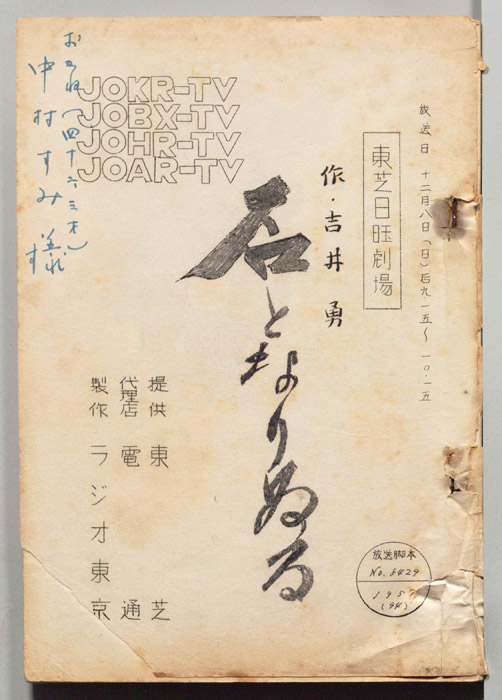 放送日 十二月八日(日)后九・一五～一〇・一五
東芝日旺劇場
作・吉井勇
石となりぬる
JOKR-TV
JOBX-TV
JOHR-TV
JOAR-TV
中村すみ様
提供 東芝
代理店 電通
製作 ラジオ東京
放送脚本
No. 8429